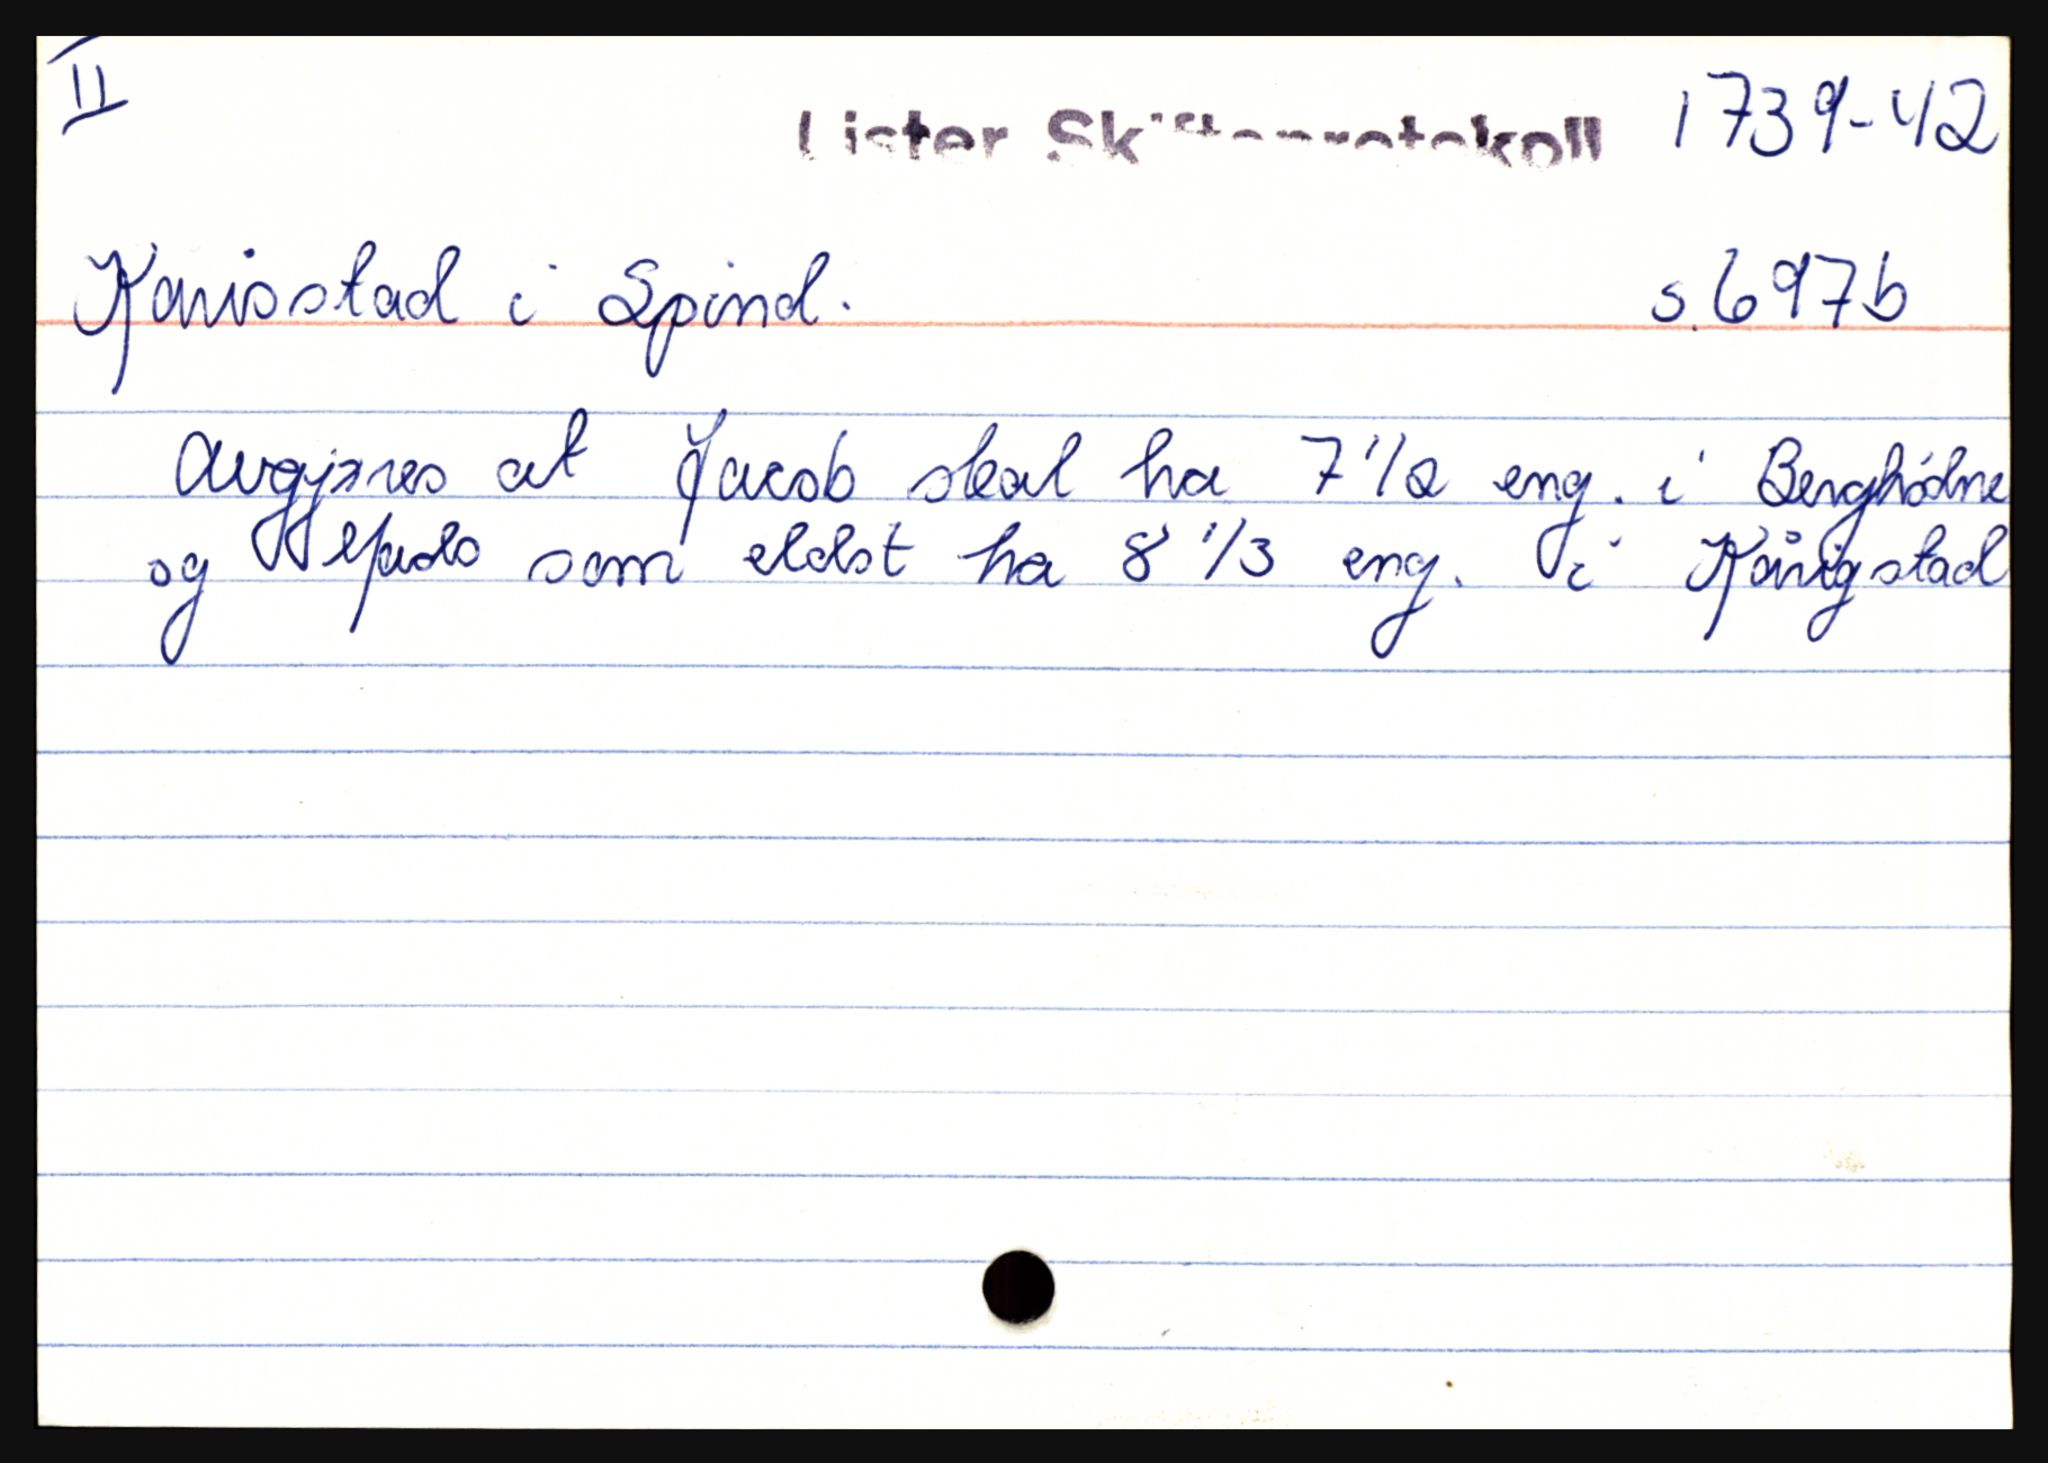 II
Lister Skifteprotokoll 1739-42
Karisstad i Spind. s. 697b
Avgjøres at Jacob skal ha 7 1/2 eng. i Berghódne
og som eldst ha 8 1/3 eng. i Kårigstad